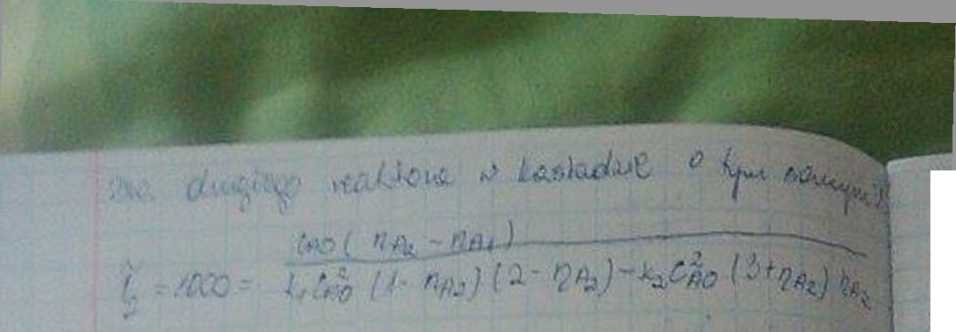 dla drugiego reaktora w kaskadzie o tym samym
τ₂ = 1000 = C_A0 (η_A2 - η_A1) / k₁C²_A0 (1 - η_A2)(2 - η_A2) - k₂C²_A0 (3 + η_A2) η_A2